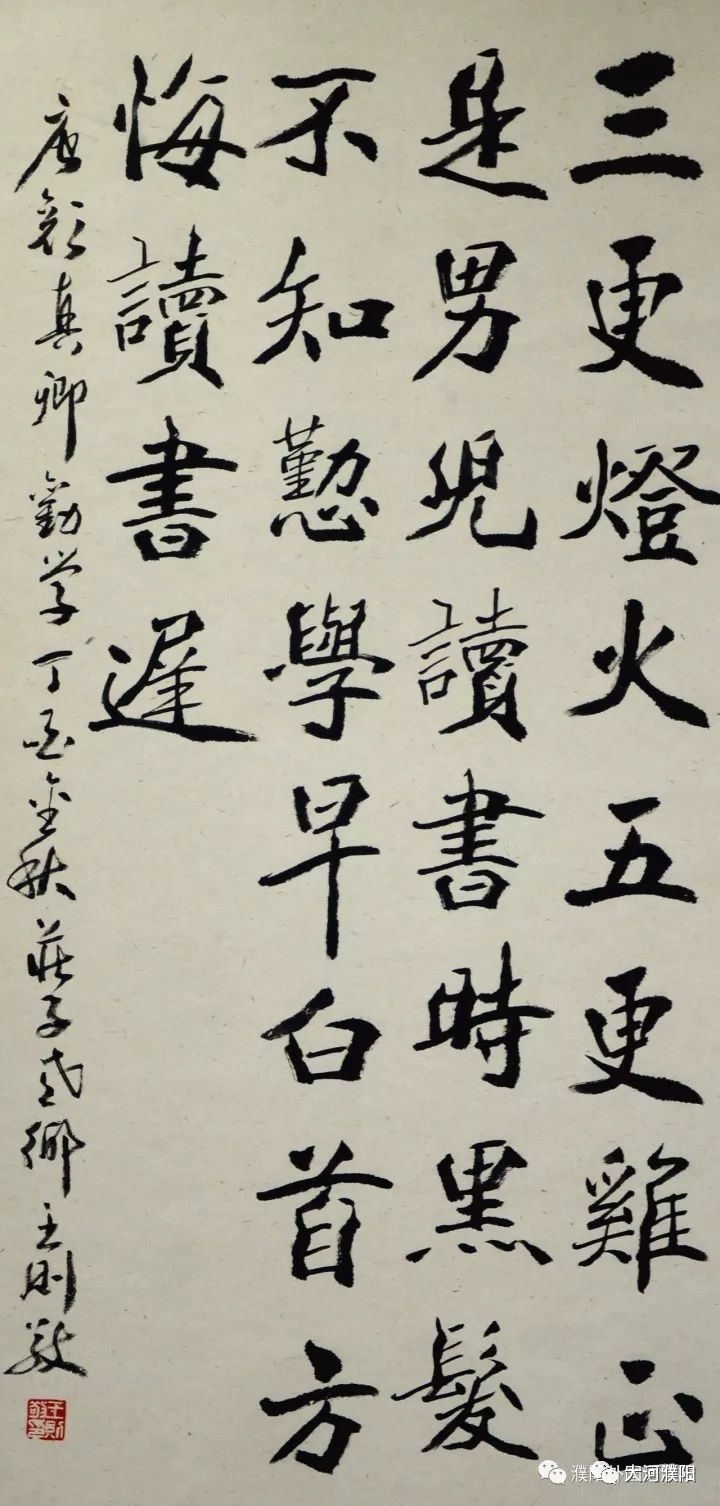 三更燈火五更雞正
是男兒讀書時黑髮
不知懃學早白首方
悔讀書遲
唐顏真卿勸学丁酉金秋莊子故鄉王則敬
大河濮阳